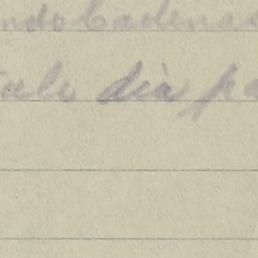 ndo Cadenas
talo dia pa